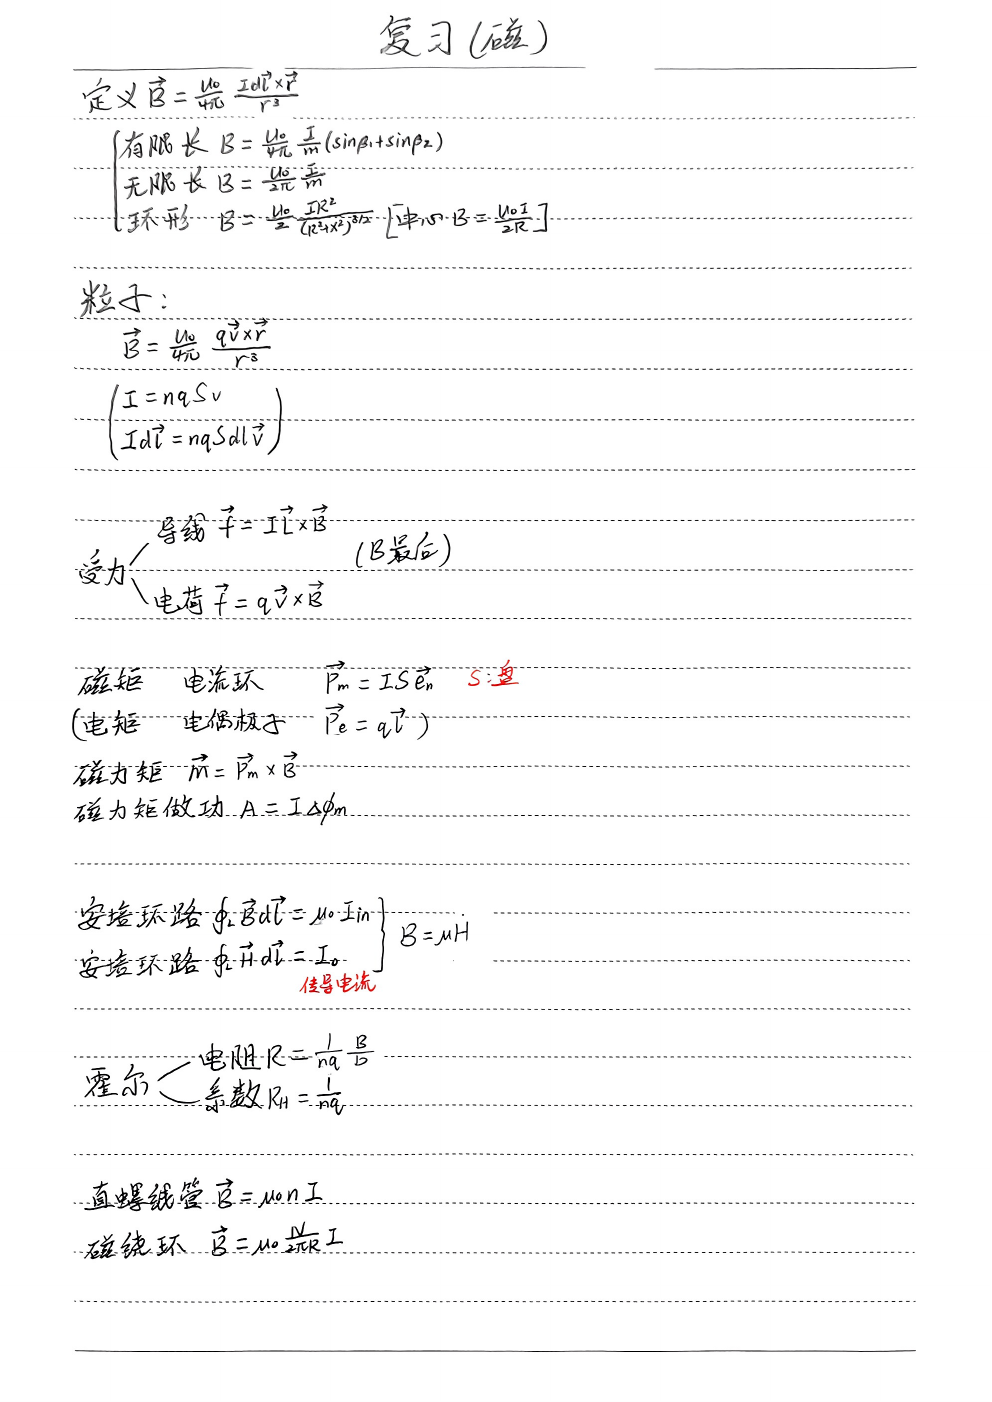 复习(磁)
定义 B⃗ = μ₀/4π Idl⃗×r⃗/r³
有限长 B = μ₀/4π I/m (sinβ₁+sinβ₂)
无限长 B = μ₀/2π I/m
环形 B = μ₀/2 IR²/(R²+x²)^3/2 [中心 B = μ₀I/2R]
粒子:
B⃗ = μ₀/4π qv⃗×r⃗/r³
I = nqSv
Idl⃗ = nqSdlv⃗
受力
导线 f⃗ = IL⃗×B⃗
(B最后)
电荷 f⃗ = qv⃗×B⃗
磁矩 电流环 P⃗m = ISe⃗n S:盘
(电矩 电偶极子 P⃗e = ql⃗)
磁力矩 m⃗ = P⃗m×B⃗
磁力矩做功 A = IΔϕm
安培环路 ∮L B⃗dl⃗ = μ₀Iin
安培环路 ∮L H⃗dl⃗ = I₀
B = μH
传导电流
霍尔
电阻 R = 1/nq B/D
系数 RH = 1/nq
直螺线管 B⃗ = μ₀nI
磁绕环 B⃗ = μ₀ N/2πR I